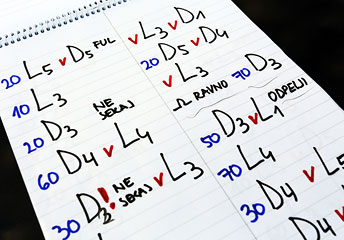 20 L5 v D5 FUL
10 L3 NE SEKAJ
20 D3
60 D4 v L4
30 D3! NE SEKAJ v L3
v L3 v D1
20 D5 v D4
v L3 70 D3
Ω RAVNO ODPELJI
50 D3 v L1
70 L4
v L5
50 D4